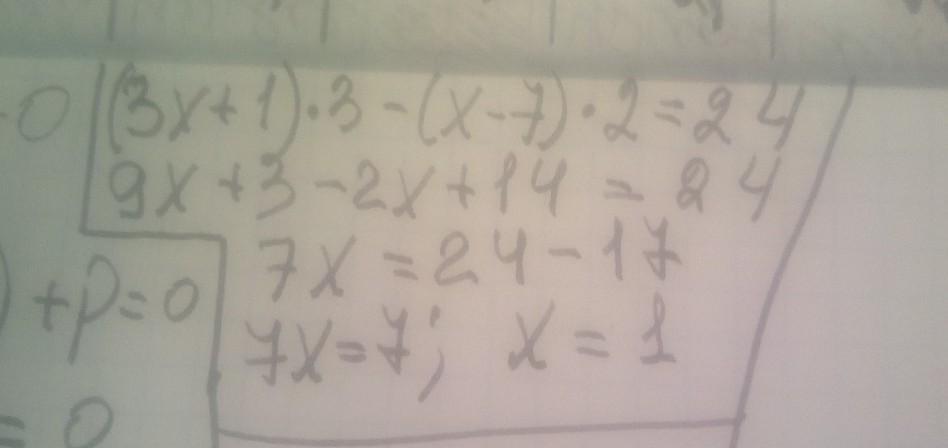 -0
(3x+1)·3-(x-7)·2=24
9x+3-2x+14=24
7x=24-17
)+p=0
7x=7; x=1
=0